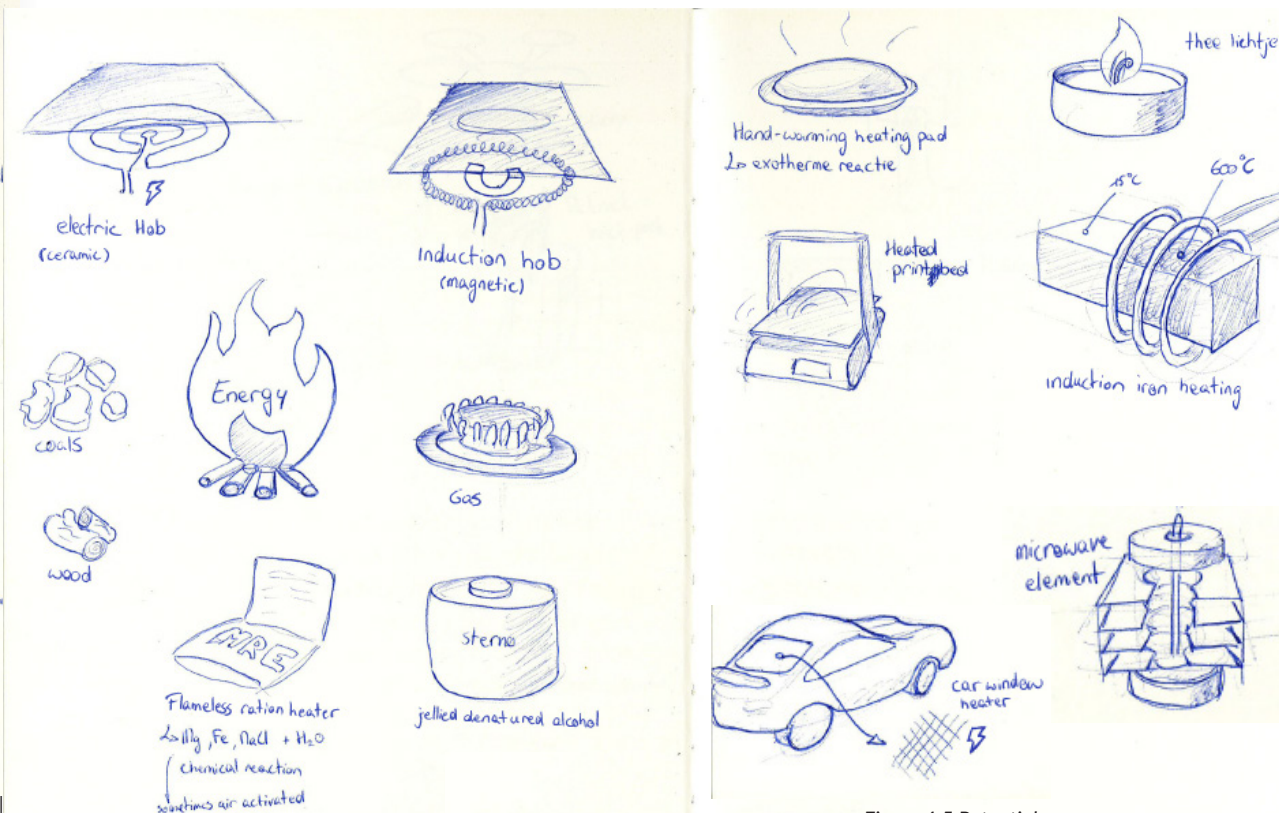 electric Hob
(ceramic)
Induction hob
(magnetic)
Energy
coals
wood
Gas
MRE
Flameless ration heater
↳ Mg, Fe, NaCl + H₂O
chemical reaction
sometimes air activated
sterno
jellied denatured alcohol
Hand-warming heating pad
↳ exotherme reactie
thee lichtje
Heated
printbed
15°C
600°C
induction iron heating
microwave
element
car window
heater